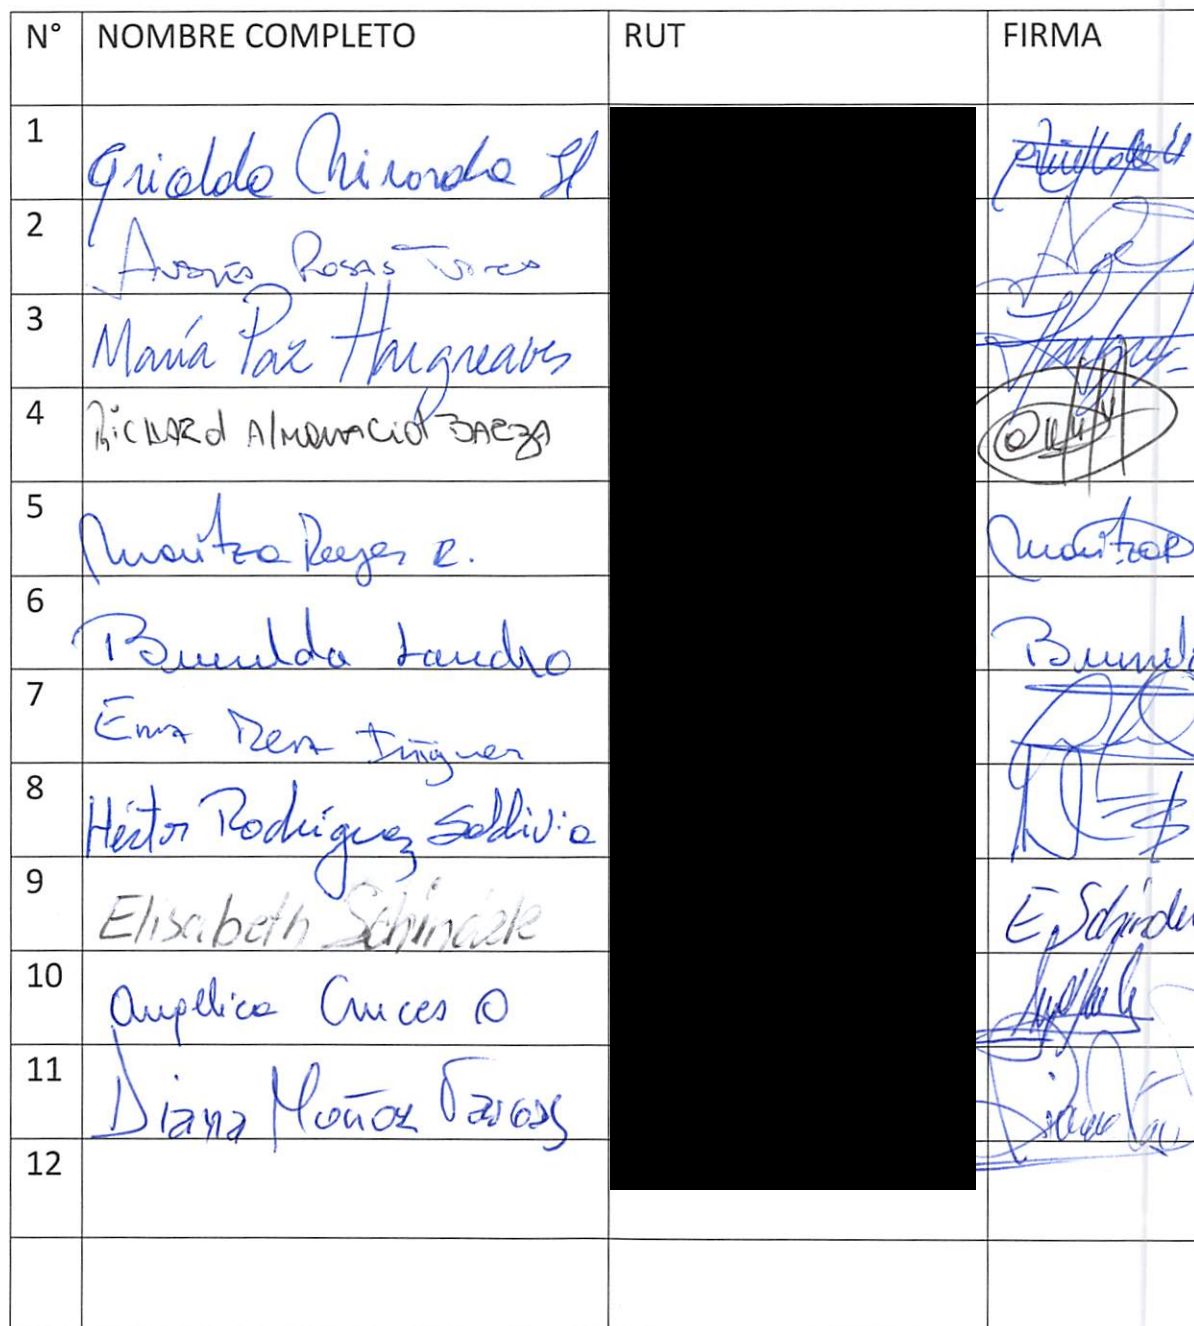 N° NOMBRE COMPLETO RUT FIRMA
1 Grialdo Miranda H
2 Andrés Rosas Torres
3 María Paz Hargreaves
4 Richard Almonacid BAEZA
5 Maritza Reyes R. Maritza R
6 Brunilda Landro Brunild
7 Ema Mera Iñiguez
8 Héctor Rodríguez Saldivia
9 Elisabeth Schindele E Schindle
10 Angélica Cruces O
11 Diana Muñoz Vargas
12